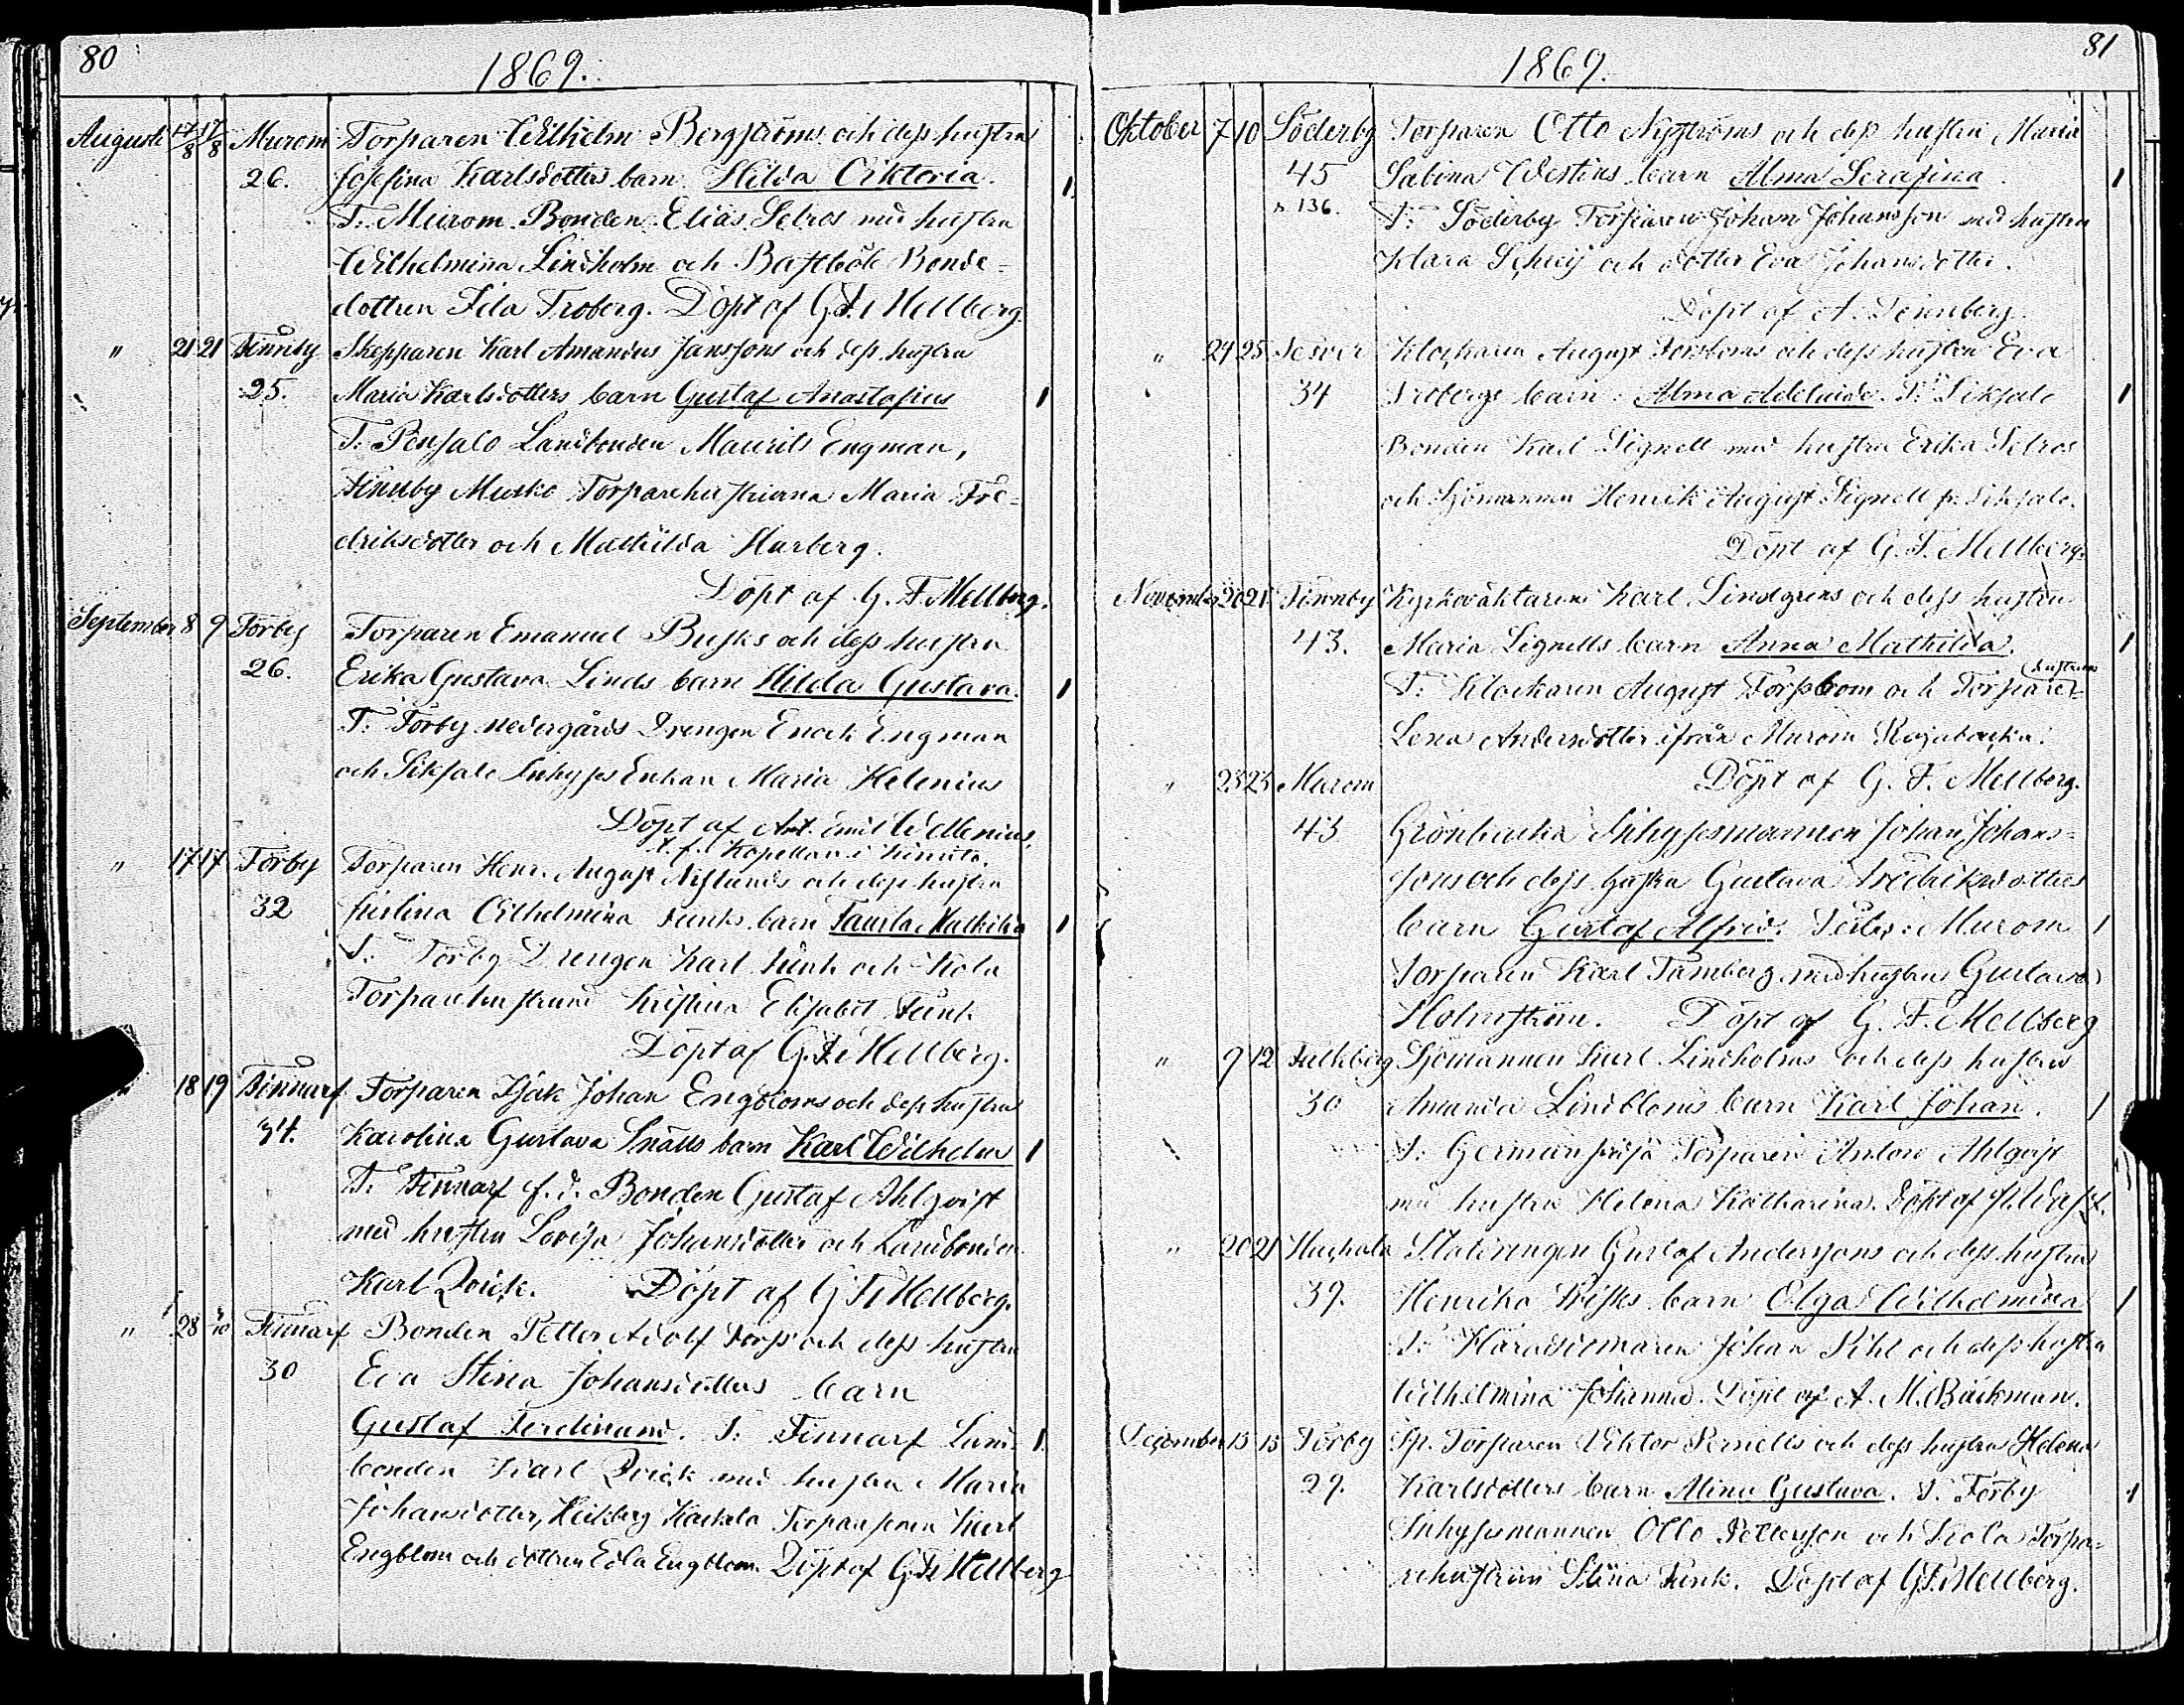 80
1869.
Augusti 17/8 17/8 Murom Torparen Wilhelm Bergströms och dess hustrus
26. Josefina Karlsdotters barn Hilda Viktoria. 1
T. Murom Bonden Elias Selros med hustru
Wilhelmina Lindholm och Bastböle Bonde-
dottren Ida Froberg. Döpt af G. F. Mellberg.
" 21 21 Finnby Skepparen Karl Amandus Janssons och dess hustru
25. Maria Karlsdotters barn Gustaf Anastasius 1
T. Pensalo Landbonden Maurits Engman,
Finnby Musko Torparehustrurna Maria Fre-
driksdotter och Mathilda Harberg.
Döpt af G. F. Mellberg.
September 8 9 Förby Torparen Emanuel Busks och dess hustru
26. Erika Gustava Linds barn Hilda Gustava. 1
T. Förby nedergårds Drengen Enock Engman
och Siksalo Inhyses Enkan Maria Helenius
Döpt af Ant. Emil Wellenius,
t. f. Kapellan i Kimito.
" 17 17 Förby Torparen Henr. August Nyslunds och dess hustru
32 Kristina Vilhelmina Funks barn Mathilda 1
T. Förby Drengen Karl Funk och Kola
Torparehustrun Kristina Elisabet Funk
Döpt af G. F. Mellberg.
18 19 Finnarf Torparen Isak Johan Engbloms och dess hustru
34. Karolina Gustava Snälls barn Karl Wilhelm 1
T. Finnarf f. d. Bonden Gustaf Ahlqvist
med hustru Lovisa Johansdotter och Landbonden
Karl Qvick. Döpt af G. F. Mellberg.
" 28 Finnarf Bonden Petter Adolf Forss och dess hustru
30 Eva Stina Johansdotters barn
Gustaf Ferdinand. T. Finnarf Land- 1
bonden Karl Qvick med hustru Maria
Johansdotter, Torparesonen Karl
Engblom och dottren Eda Engblom. Döpt af G. F. Mellberg
81
1869.
Oktober 7 10 Söderby Torparen Otto Nyströms och dess hustru Maria
45 Sabina Westins barn Alma Serafina. 1
s. 136. T. Söderby Torparen Johan Johansson med hustru
Klara och dotter Eva Johansdotter.
Döpt af A. Tennberg.
" 24 25 Klockaren August Forsbloms och dess hustru Eva
34 Frobergs barn Alma Adelaide. T. Siksalo 1
Bonden Karl Signell med hustru Erika Selros
och Sjömannen Henrik August Signell fr. Siksalo.
Döpt af G. F. Mellberg.
November 20 21 Finnby Kyrkoväktaren Karl Lindgrens och dess hustru
43. Maria Signells barn Anna Mathilda. 1
T. Klockaren August Forsblom och Torpare-hustrun
Lena Andersdotter ifrån Murom Rojabacka.
Döpt af G. F. Mellberg.
" 23 23 Murom
43 Grönbacka Inhysesmannen Johan Johans-
sons och dess hustru Gustava Fredriksdotters
barn Gustaf Alfrid. Testes: Murom 1
Torparen Karl Tamberg med hustru Gustava
Holmström. Döpt af G. F. Mellberg
" 9 12 Falkberg Sjömannen Karl Lindholms och dess hustru
30 Amanda Lindbloms barn Karl Johan. 1
T. Germundsvidja Torparen Anton Ahlqvist
med hustru Helena Katharina. Döpt af
" 20 21 Statdrengen Gustaf Anderssons och dess hustru
39. Henrika barn Olga Wilhelmina 1
T. Häradsdomaren Johan Pihl och dess hustru
Wilhelmina Johanna. Döpt af A. M. Backman.
December 15 15 Förby Sp. Torparen Viktor Pernells och dess hustru Helena
29. Karlsdotters barn Mina Gustava. T. Förby 1
Inhysesmannen Otto Pettersson och Kola Torpa-
rehustrun Stina Funk. Döpt af G. F. Mellberg.